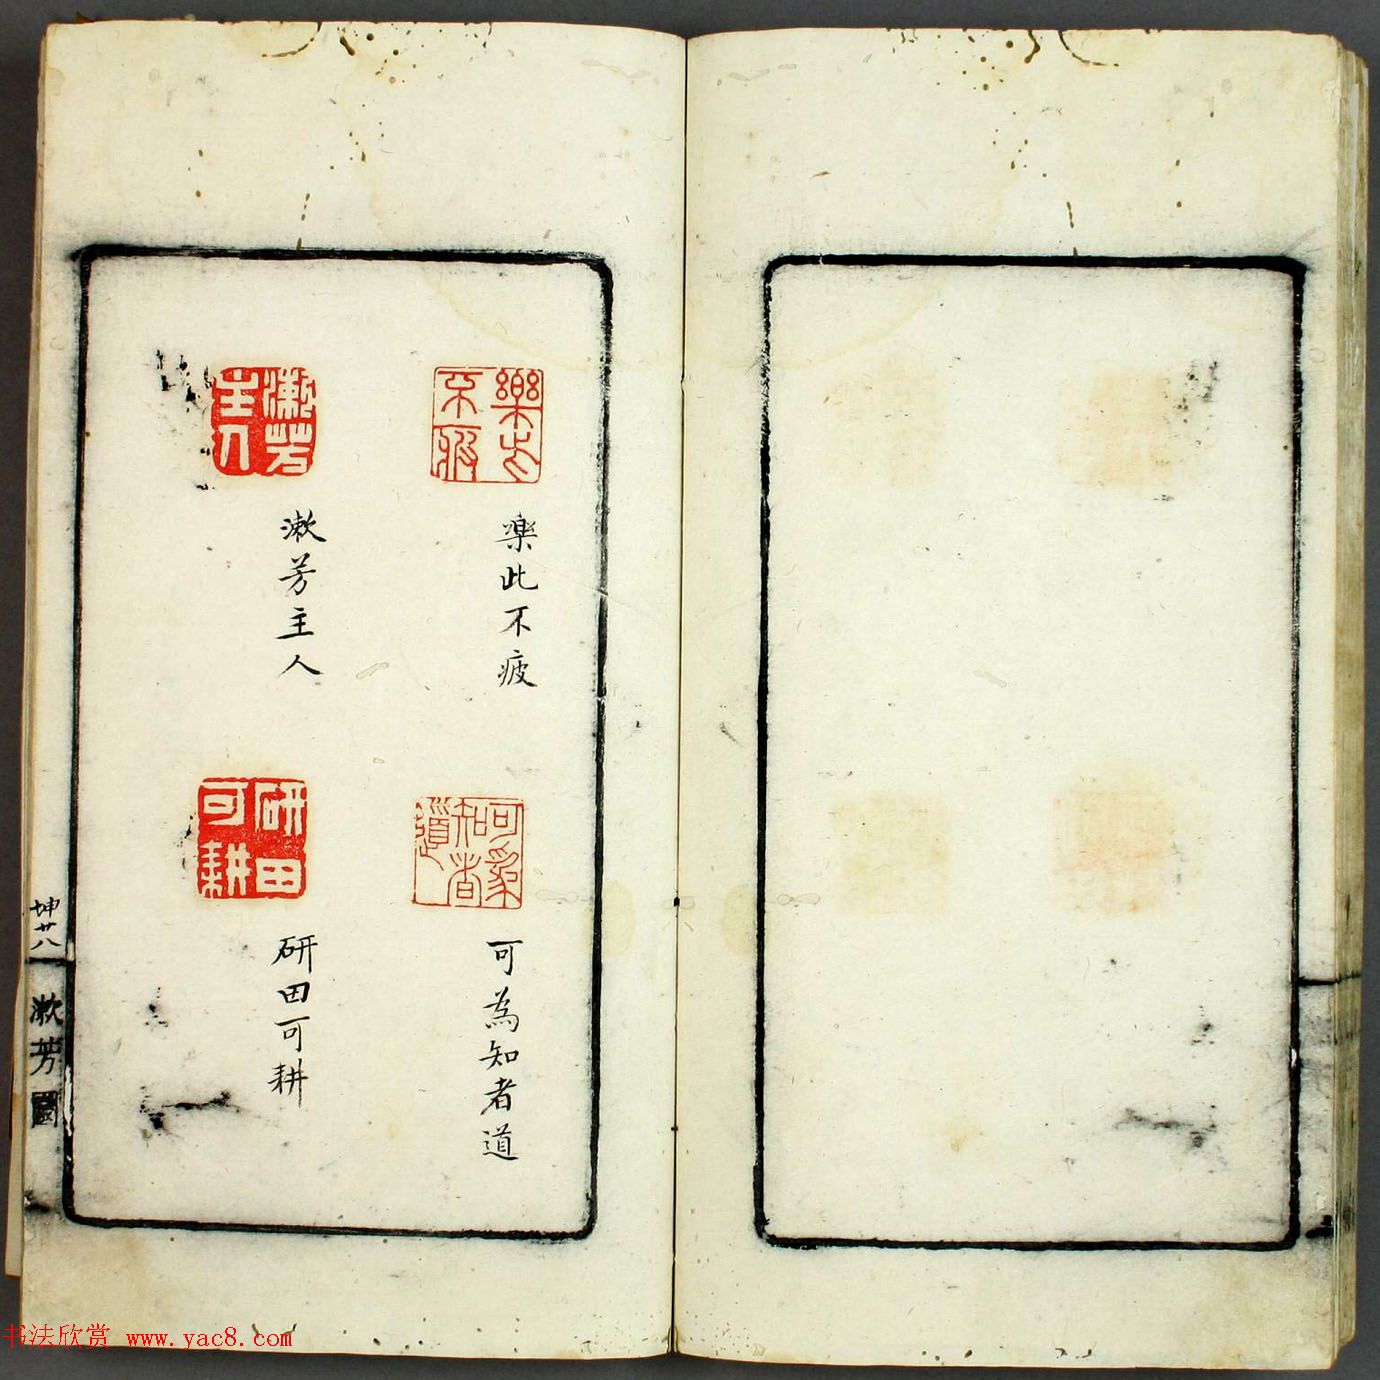 樂此不疲
樂此不疲
可為知者道
可為知者道
漱芳主人
漱芳主人
研田可耕
研田可耕
坤廿八
漱芳
书法欣赏 www.yac8.com